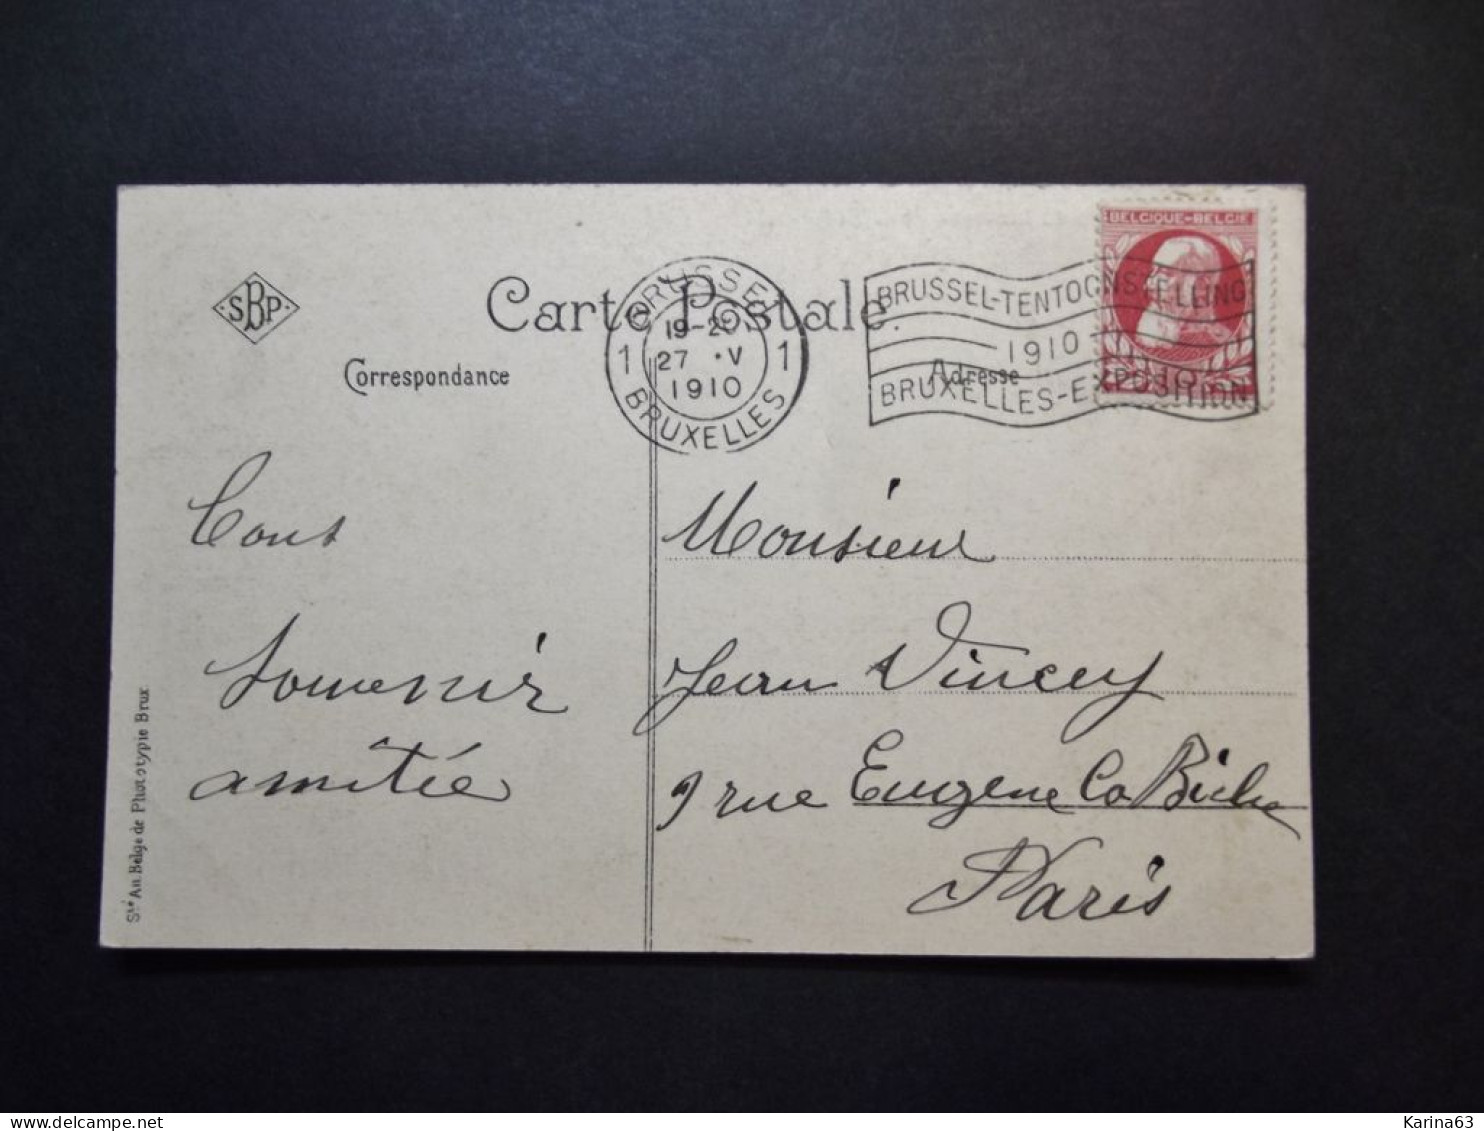 BELGIQUE-BELGIE
SBP
Carte Postale
BRUSSEL
19-20
1 27 · V 1
1910
BRUXELLES
BRUSSEL-TENTOONSTELLING
1910
BRUXELLES-EXPOSITION
10
Correspondance
Adresse
Souvenir
amitée
Monsieur
Jean Vincey
9 rue Eugene La Biche
Paris
Sté An. Belge de Phototypie Brux
Karina63